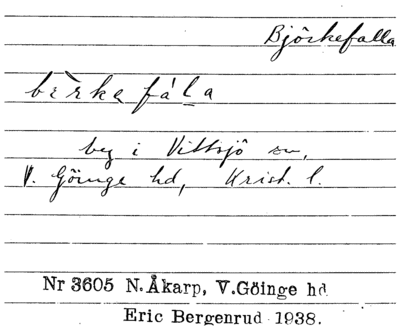 Björkefalla
bèrke fá'la
beg i Vittsjö sn,
V. Göinge hd, Krist. l.
Nr 3605 N. Åkarp, V. Göinge hd
Eric Bergenrud 1938.